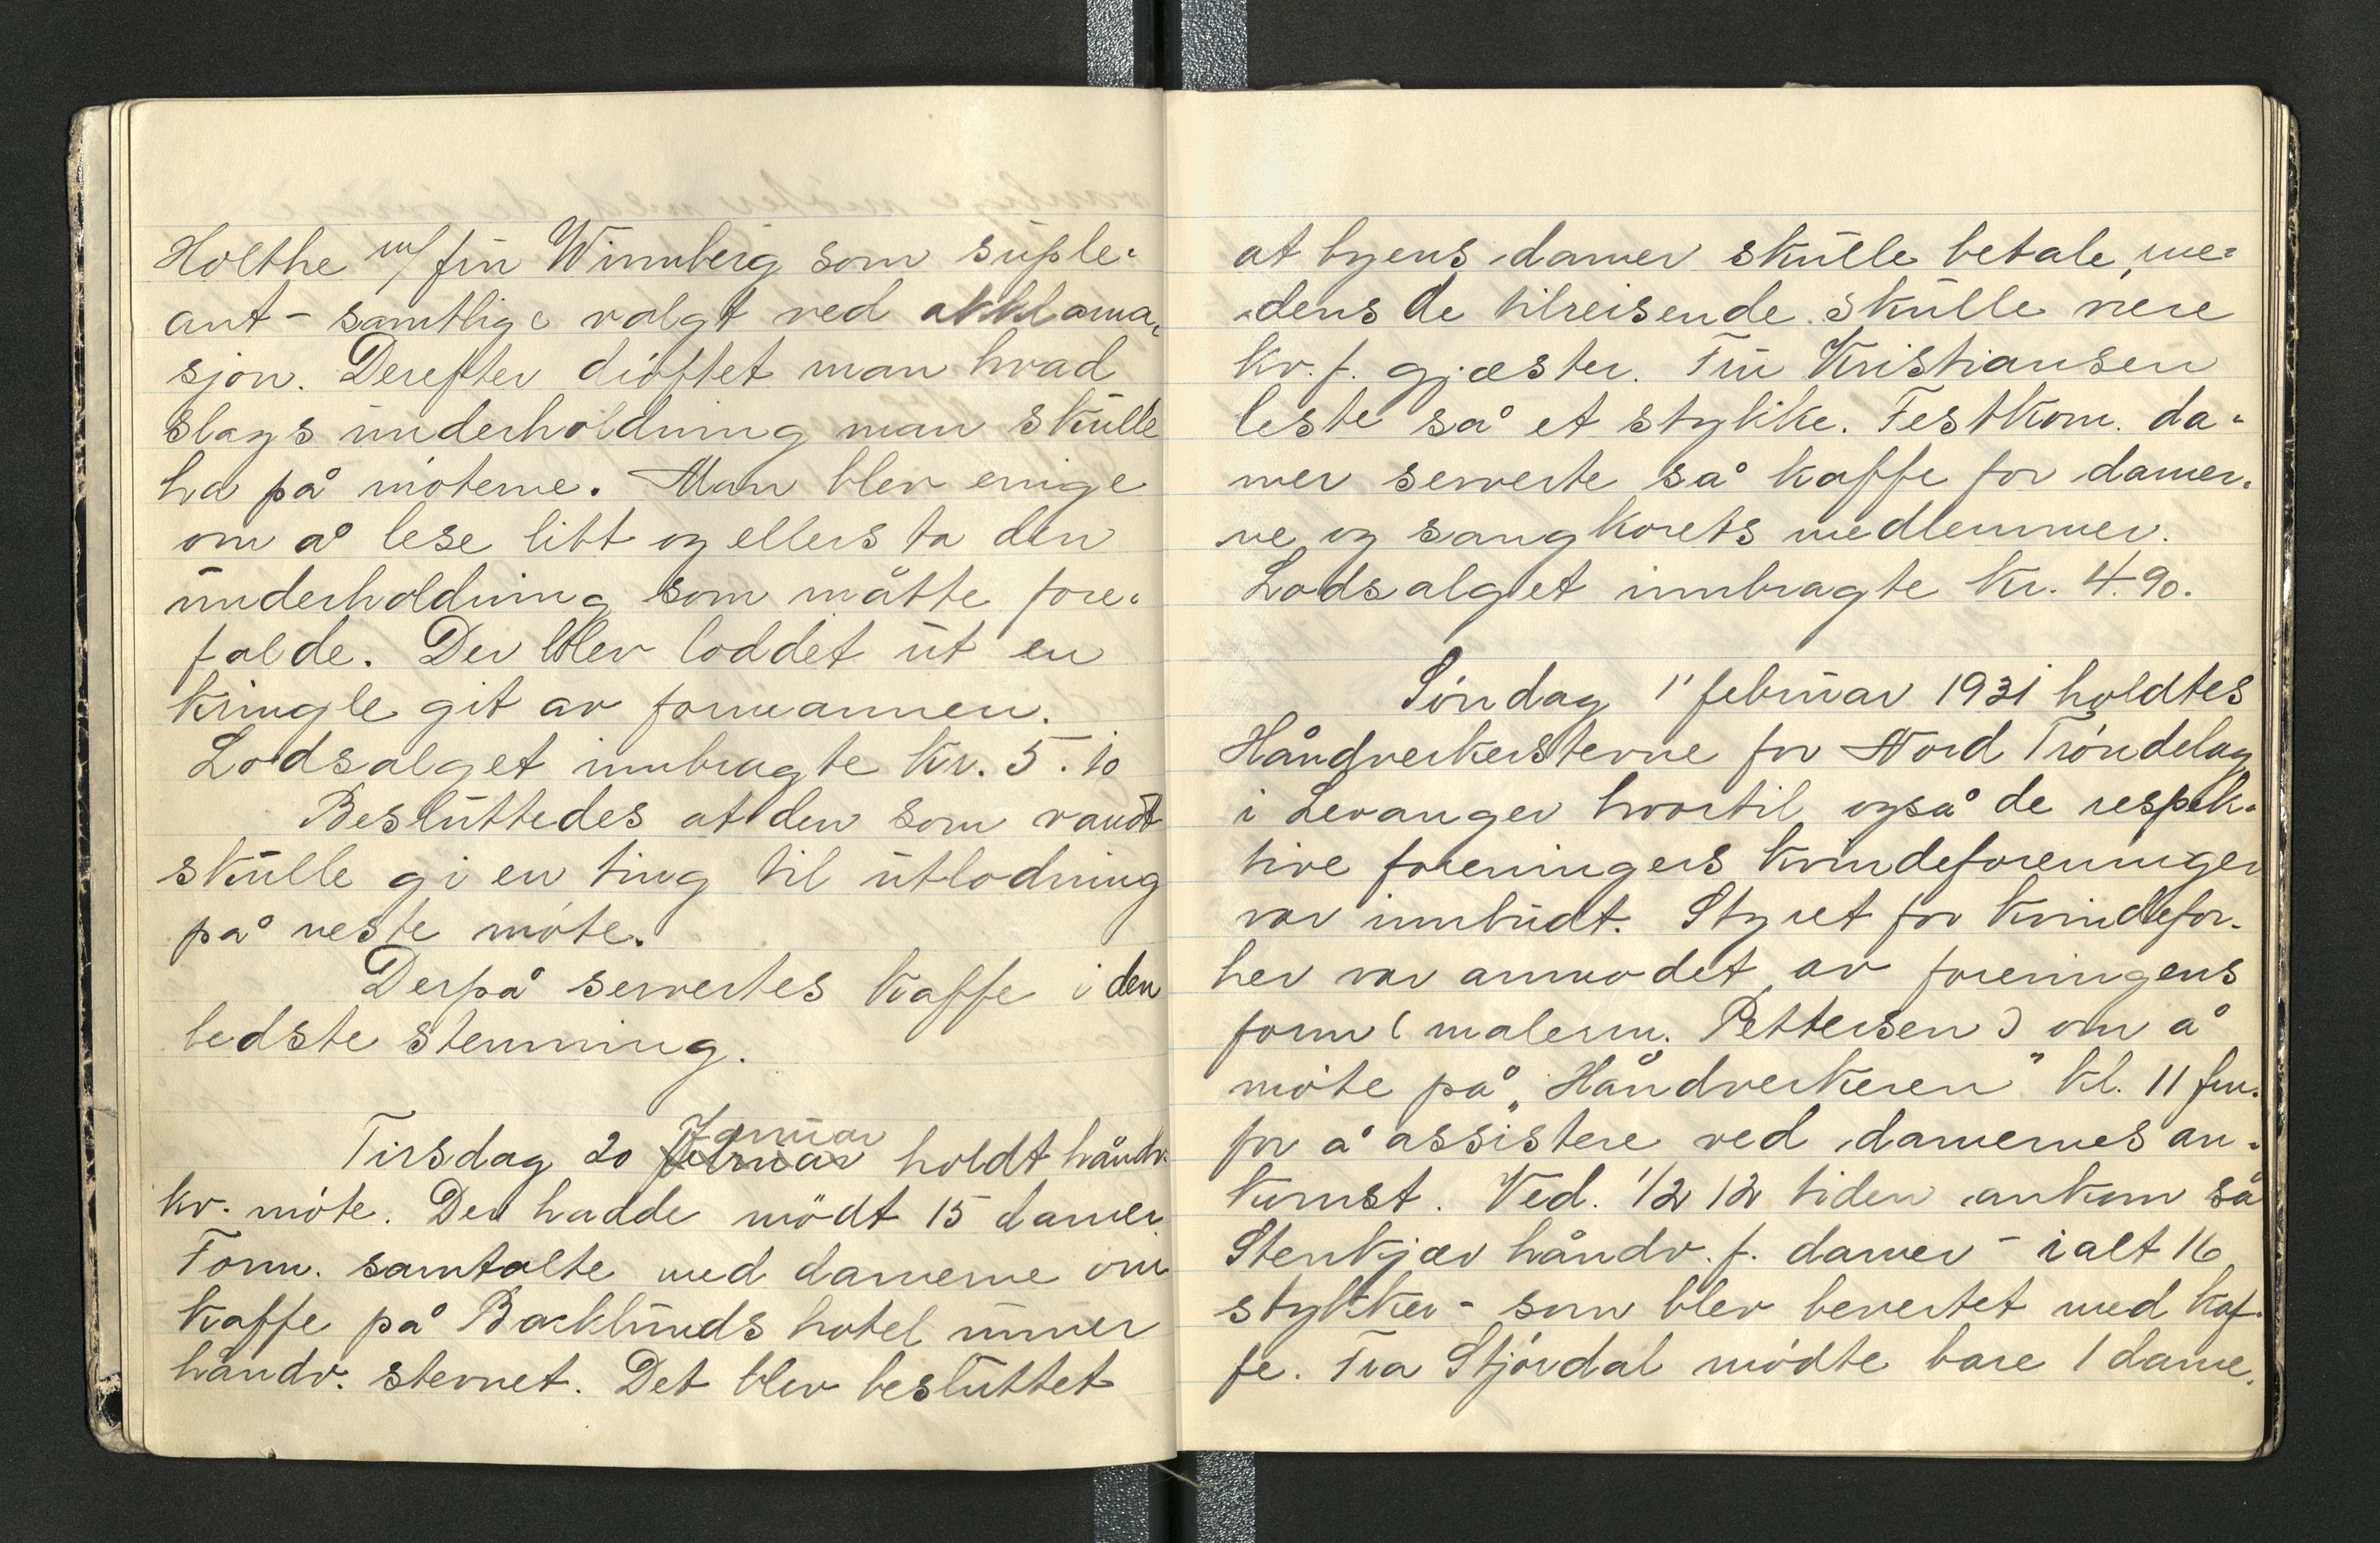 Holthe m/ fru Winnberg som suple-
ant - samtlige valgt ved akklama-
sjon. Derefter drøftet man hvad
slags underholdning man skulle
ha på møterne. Man blev enige
om å lese litt og ellers ta den
underholdning som måtte fore-
falde. Der blev loddet ut en
kringle git av formannen.
Lodsalget innbragte kr. 5.10
Besluttedes at den som vandt
skulle gi en ting til utlodning
på neste møte.
Derpå servertes kaffe i den
bedste stemning.
Tirsdag 20 februar Januar holdt håndv.
kv. møte. Der hadde mödt 15 damer
Form. samtalte med damerne om
kaffe på Backlunds hotel under
håndv. stevnet. Det blev besluttet
at byens damer skulle betale, me-
dens de tilreisende skulle være
kv. f. gjæster. Fru Kristiansen
leste så et stykke. Festkom. da-
mer serverte så kaffe for damer-
ne og sangkorets medlemmer.
Lodsalget innbragte kr. 4.90.
Søndag 1' februar 1931 holdtes
Håndverkerstevne for Nord Trøndelag
i Levanger hvortil også de respek-
tive foreningers kvindeforeninger
var innbudt. Styret for kvindefor.
her var anmodet av foreningens
form (malerm. Pettersen) om å
møte på "Håndverkeren" kl. 11 fm.
for å assistere ved damernes an-
komst. Ved. 1/2 12 tiden ankom så
Stenkjær håndv. f. damer - ialt 16
stykker - som blev bevertet med kaf-
fe. Fra Stjørdal mødte bare 1 dame.